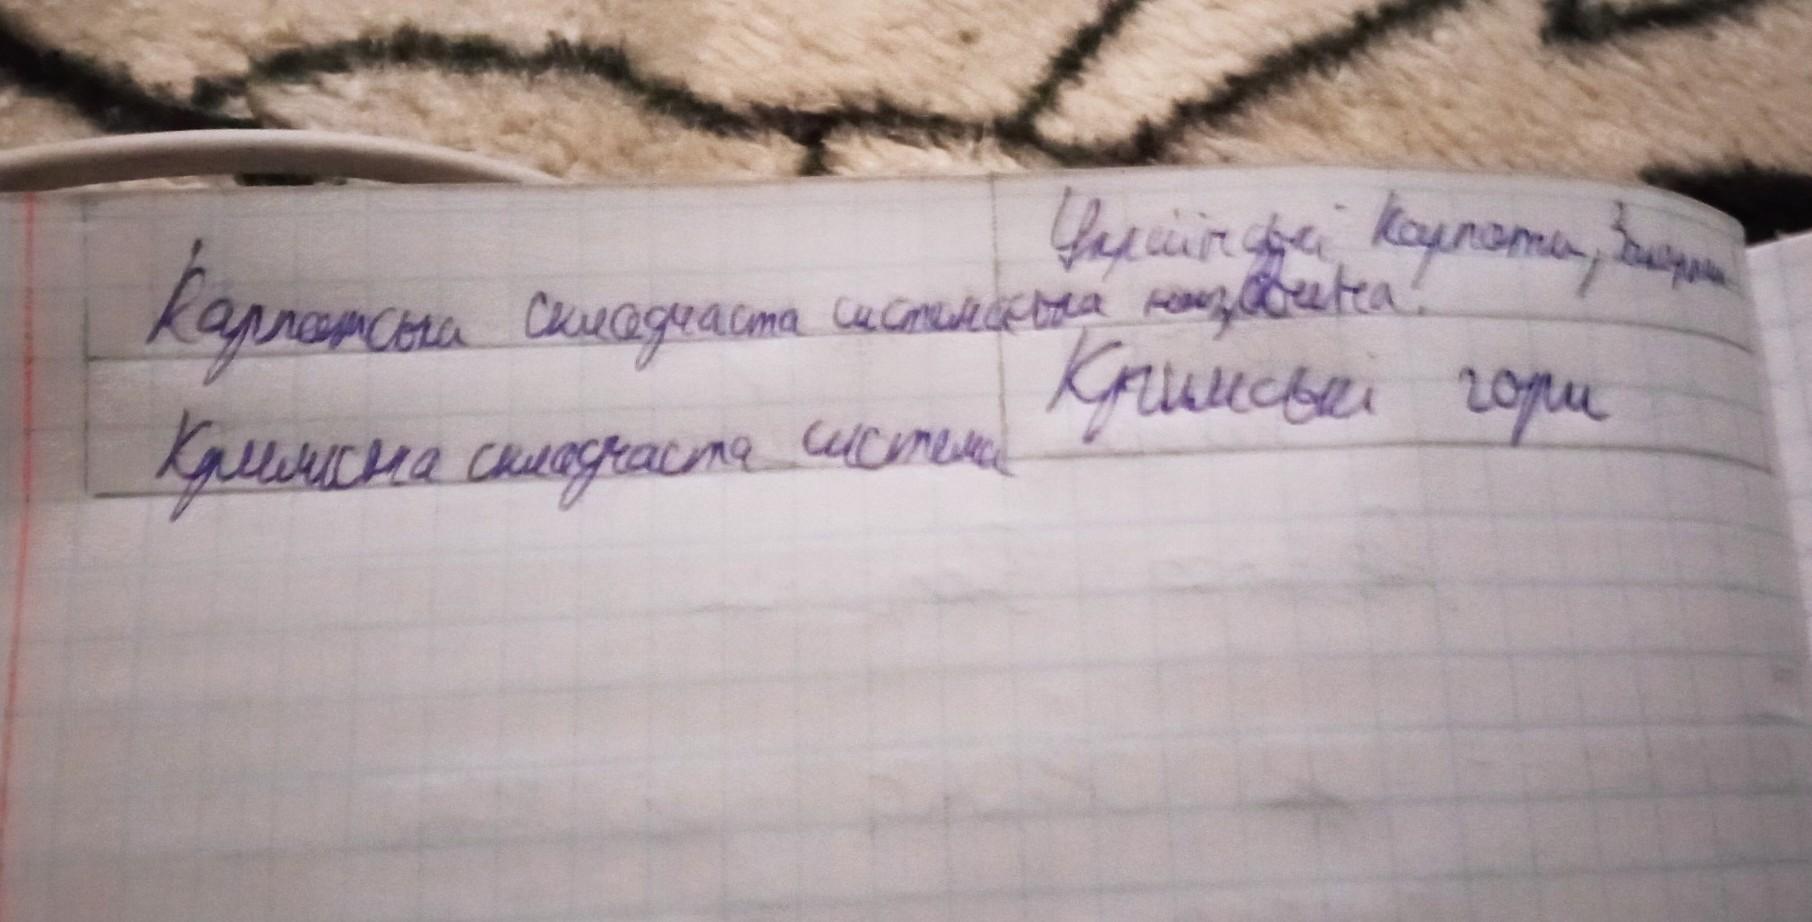 Українські Карпати, Закарпат
Карпатська складчаста система ська низовина.
Кримські гори
Кримська складчаста система